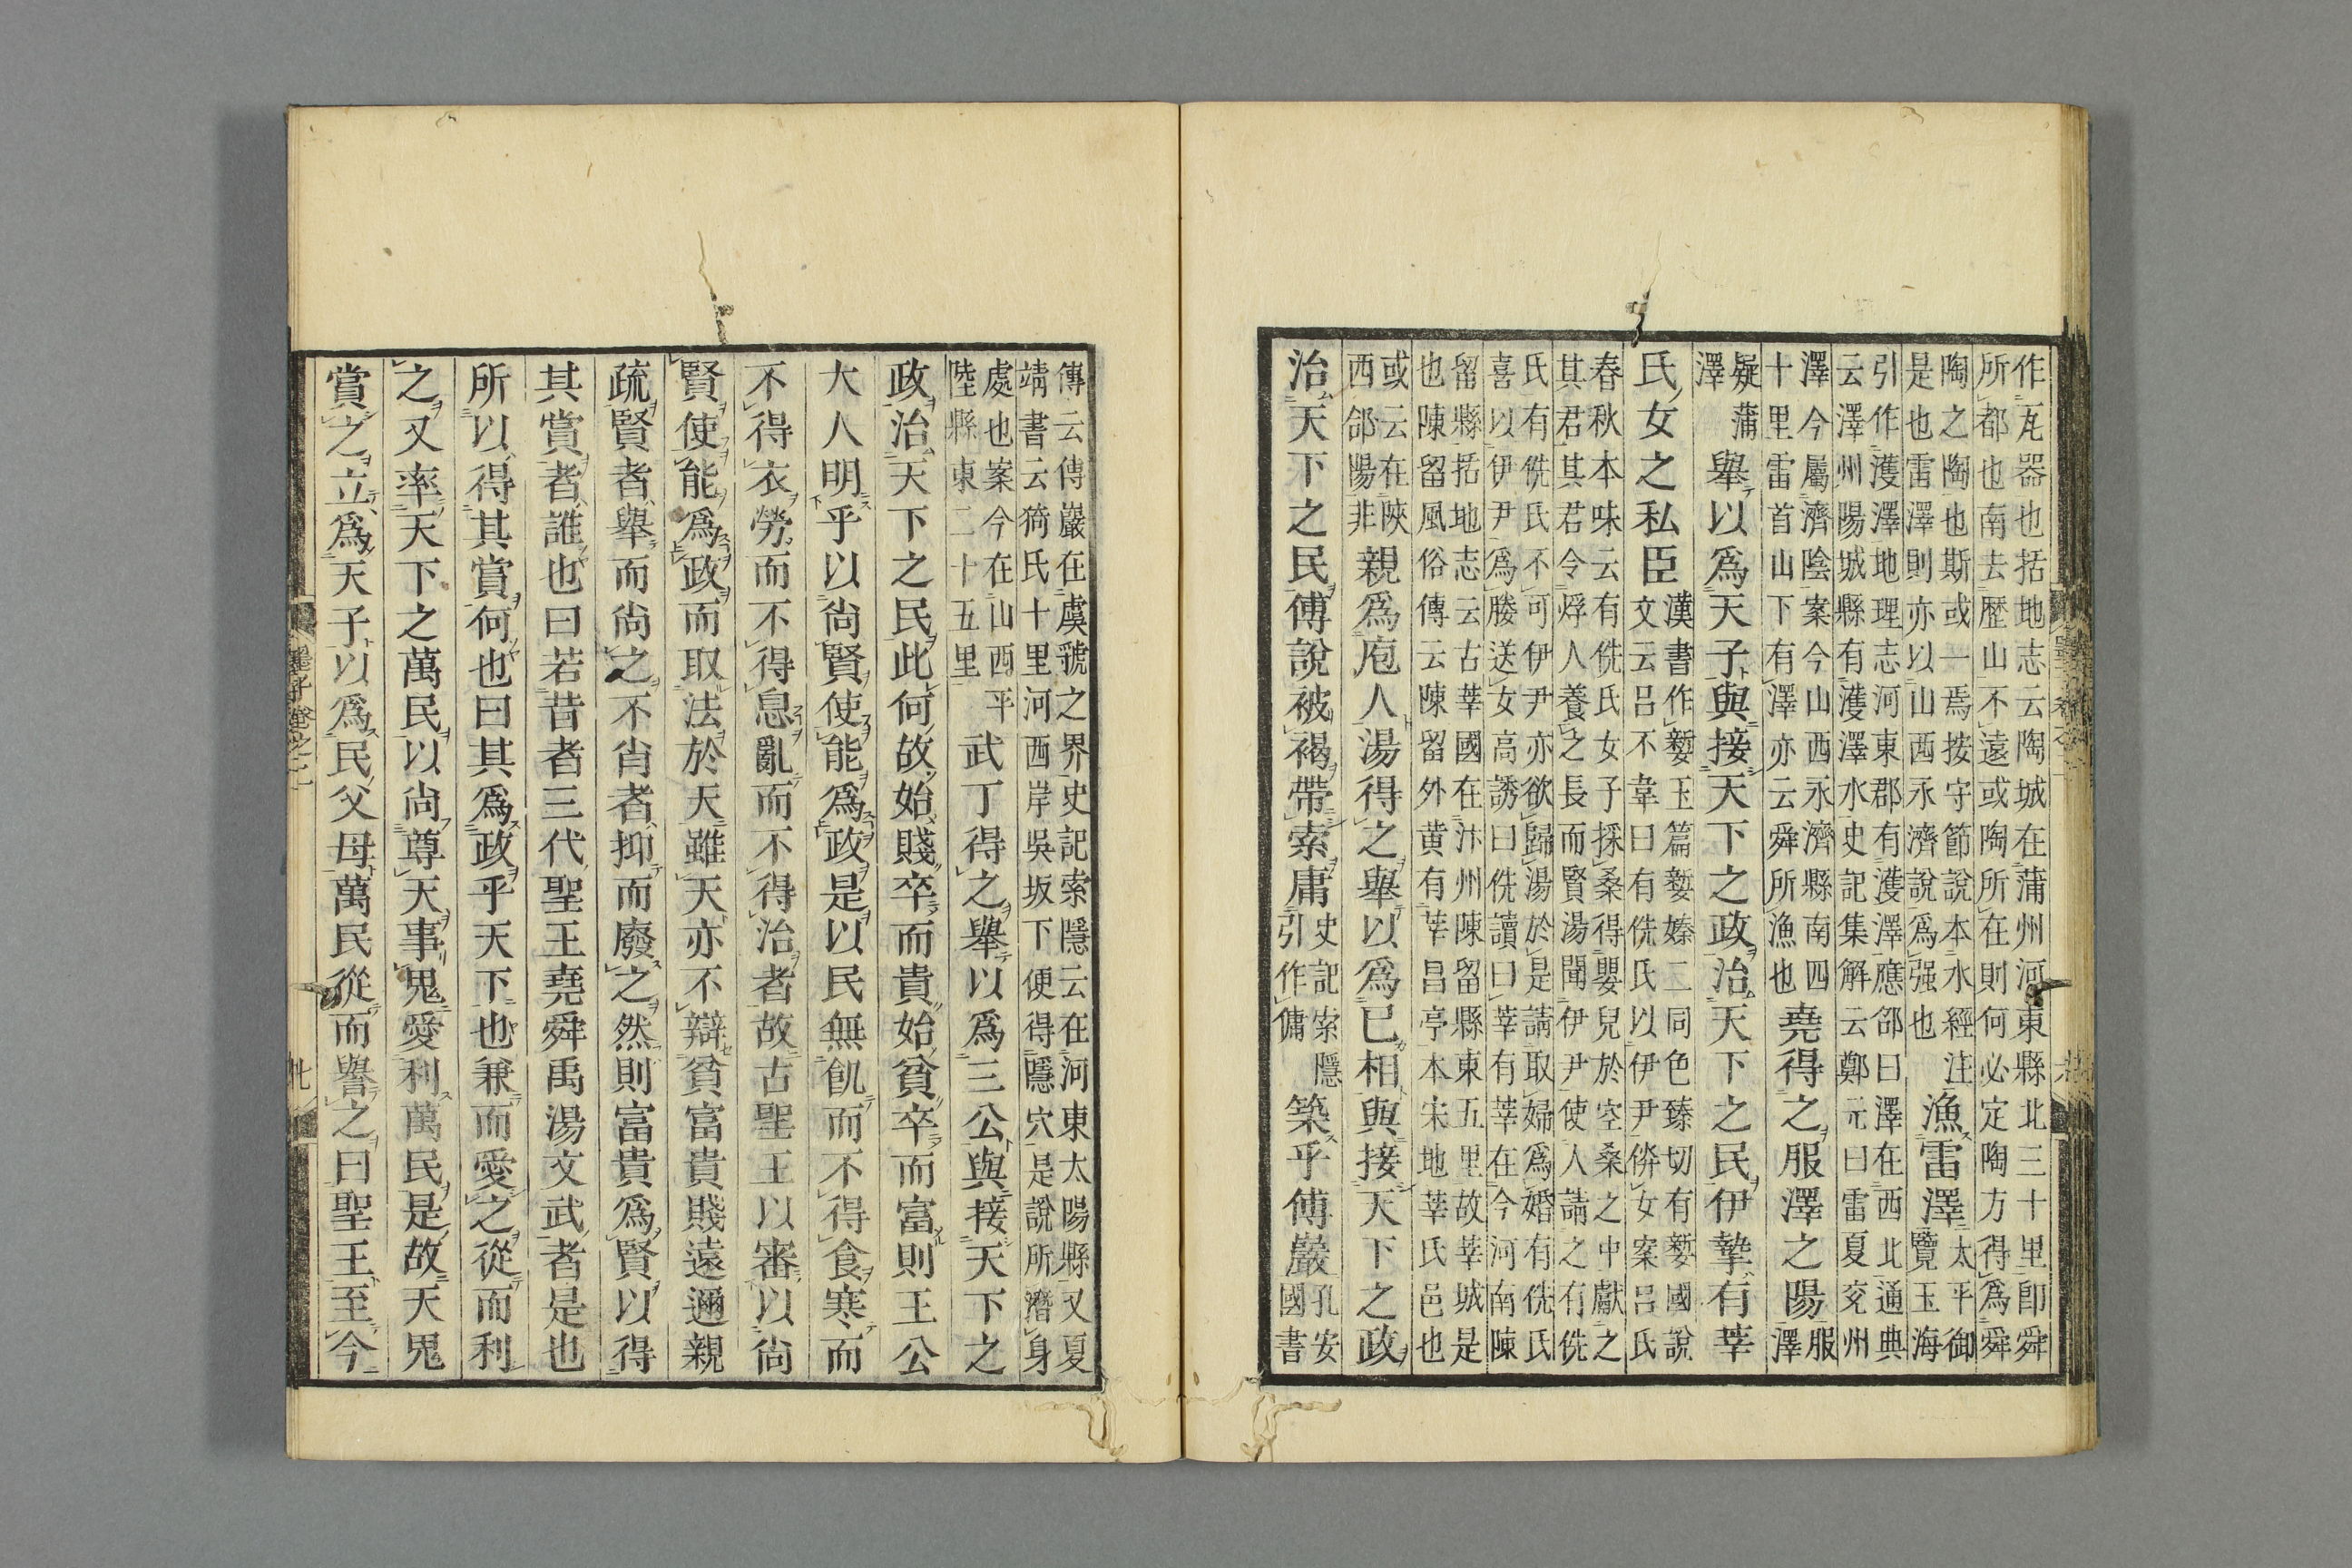 作瓦器也括地志云陶城在蒲州河東縣北三十里卽舜
所都也南去歷山不遠或陶所在則何必定陶方得爲舜
陶之陶也斯或一焉按守節說本水經注漁雷澤太平御
是也雷澤則亦以山西永濟說爲强也覽玉海
引作濩澤地理志河東郡有濩澤應劭曰澤在西北通典
云澤州陽城縣有濩澤水史記集解云鄭元曰雷夏兗州
澤今屬濟陰案今山西永濟縣南四堯得之服澤之陽服
十里雷首山下有澤亦云舜所漁也澤
疑蒲
澤舉以爲天子與接天下之政治天下之民伊摯有莘
氏女之私臣漢書作㜪玉篇㜪嫀二同色臻切有㜪國說
文云呂不韋曰有侁氏以伊尹㑞女案呂氏
春秋本味云有侁氏女子採桑得嬰兒於空桑之中獻之
其君其君令烰人養之長而賢湯聞伊尹使人請之有侁
氏有侁氏不可伊尹亦欲歸湯於是請取婦爲婚有侁氏
喜以伊尹爲媵送女高誘曰侁讀曰莘有莘在今河南陳
留縣括地志云古莘國在汴州陳留縣東五里故莘城是
也陳留風俗傳云陳留外黃有莘昌亭本宋地莘氏邑也
或云在陝
西郃陽非親爲庖人湯得之舉以爲己相與接天下之政
治天下之民傅說被褐帶索庸史記索隱築乎傅巖孔安
引作傭國書
傳云傅巖在虞虢之界史記索隱云在河東太陽縣又夏
靖書云猗氏十里河西岸吳坂下便得隱穴是說所潛身
處也案今在山西平武丁得之舉以爲三公與接天下之
陸縣東二十五里
政治天下之民此何故始賤卒而貴始貧卒而富則王公
大人明乎以尙賢使能爲政是以民無飢而不得食寒而
不得衣勞而不得息亂而不得治者故古聖王以審以尙
賢使能爲政而取法於天雖天亦不辯貧富貴賤遠邇親
疏賢者舉而尙之不肖者抑而廢之然則富貴爲賢以得
其賞者誰也曰若昔者三代聖王堯舜禹湯文武者是也
所以得其賞何也曰其爲政乎天下也兼而愛之從而利
之又率天下之萬民以尙尊天事鬼愛利萬民是故天鬼
賞之立爲天子以爲民父母萬民從而譽之曰聖王至今
墨子卷之二